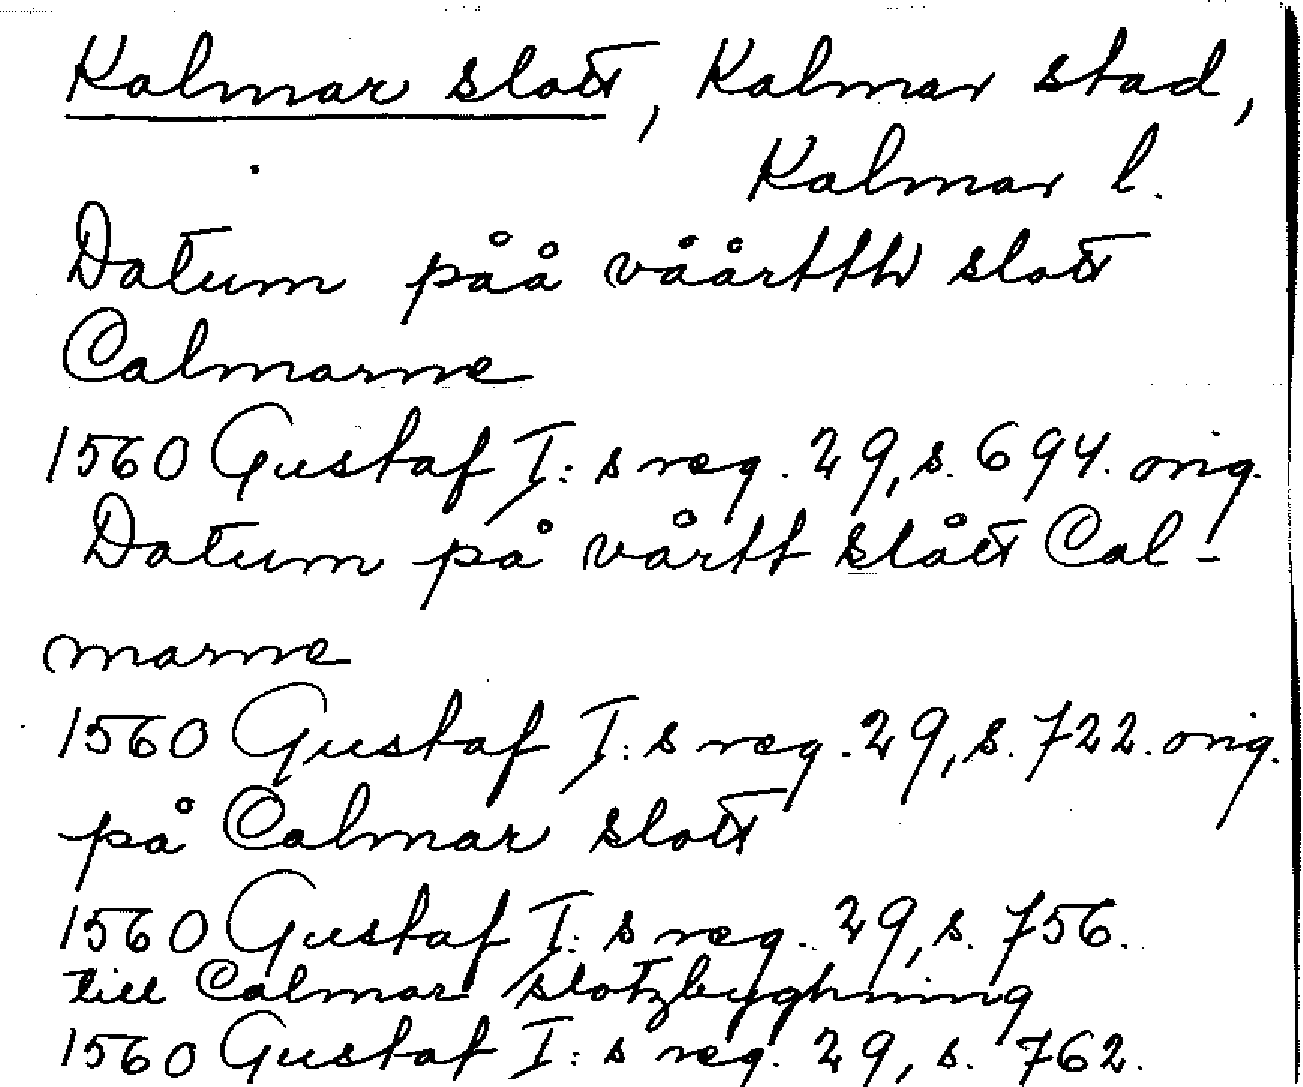 Kalmar slott, Kalmar stad,
Kalmar l.
Datum påå våårtth slott
Calmarne
1560 Gustaf I:s reg. 29, s. 694. orig.
Datum på vårtt slått Cal-
marne
1560 Gustaf I:s reg. 29, s. 722. orig.
på Calmar slott
1560 Gustaf I:s reg. 29, s. 756.
till Calmar slotzbyghning
1560 Gustaf I:s reg. 29, s. 762.